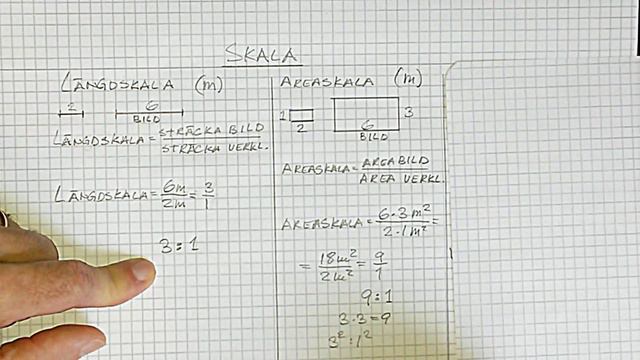 SKALA
LÄNGDSKALA (m)
2 6
BILD
LÄNGDSKALA = STRÄCKA BILD / STRÄCKA VERKL.
LÄNGDSKALA = 6m / 2m = 3 / 1
3:1
AREASKALA (m)
1 2 6 3
BILD
AREASKALA = AREA BILD / AREA VERKL.
AREASKALA = 6·3 m² / 2·1 m² =
= 18m² / 2m² = 9 / 1
9:1
3·3=9
3²:1²